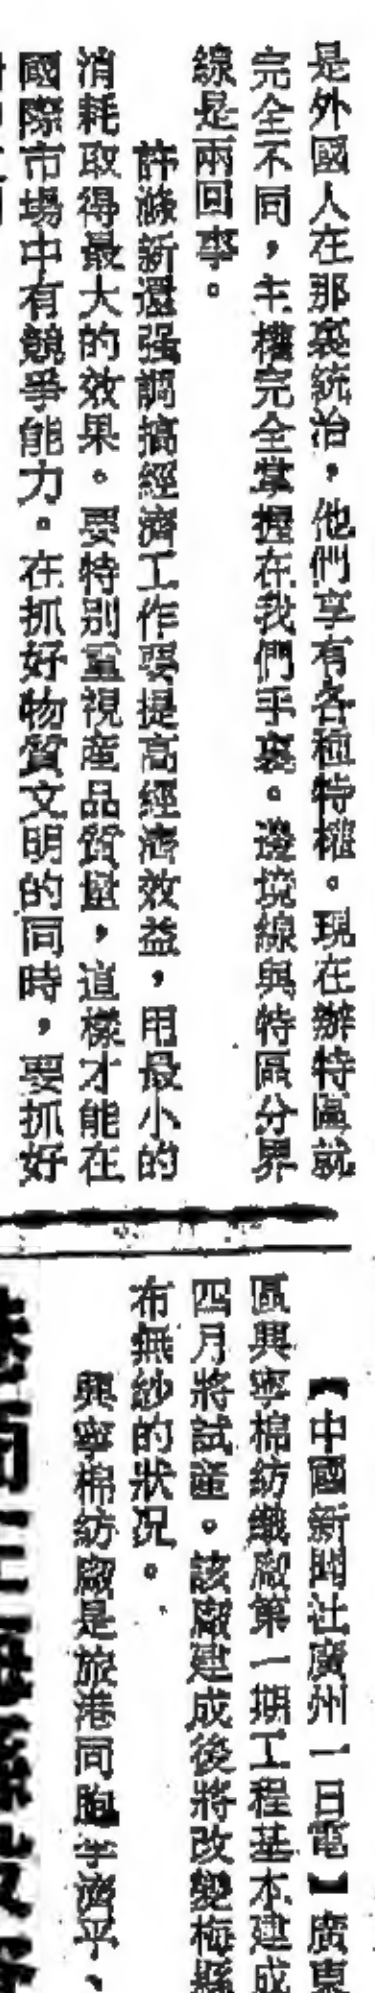 是外國人在那裏統治，他們享有各種特權。現在辦特區就
完全不同，主權完全掌握在我們手裏。邊境線與特區分界
線是兩回事。
許滌新還强調搞經濟工作要提高經濟效益，用最小的
消耗取得最大的效果。要特別重視產品質量，這樣才能在
國際市場中有競爭能力。在抓好物質文明的同時，要抓好
【中國新聞社廣州一日電】廣東
區興寧棉紡織廠第一期工程基本建成
四月將試產。該廠建成後將改變梅縣
布無紗的狀況。
興寧棉紡廠是旅港同胞李濟平、